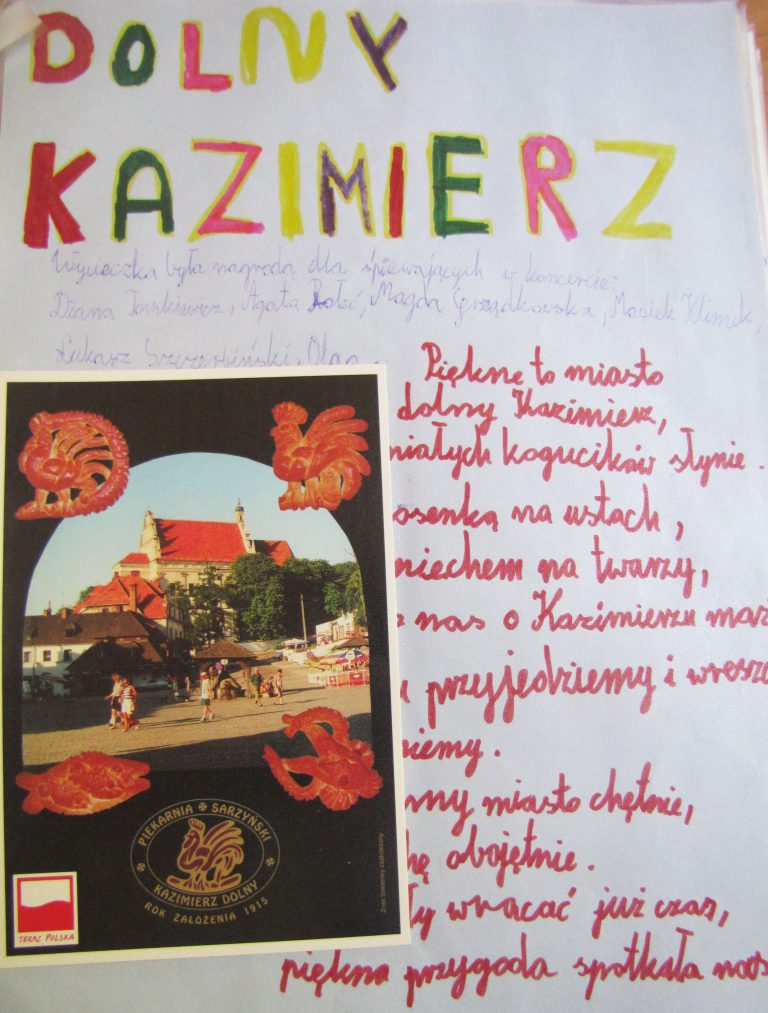 DOLNY
KAZIMIERZ
Wycieczka była nagrodą dla śpiewających w koncercie:
Diana Agata Magda Maciek Klimek,
Łukasz Szczerbiński, Olga
Piękne to miasto
dolny Kazimierz,
małych kogucików słynie.
osenką na ustach,
miechem na twarzy,
z nas o Kazimierzu marz
przyjedziemy i wresz
niemy.
my miasto chętnie,
hę obojętnie.
ły wracać już czas,
piękna przygoda spotkała nas
PIEKARNIA SARZYŃSKI
KAZIMIERZ DOLNY
ROK ZAŁOŻENIA 1915
TERAZ POLSKA
Znak towarowy zastrzeżony